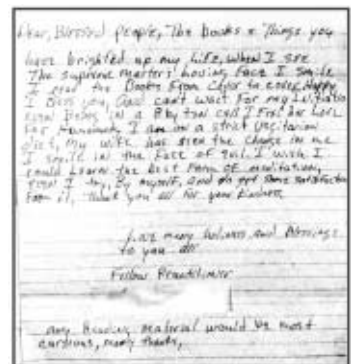 Dear, Blessed people, The books & Things you
have brighted up my life, when I see
The supreme masters' Loving Face I smile
I read the Books From Cover to cover Happy
I Bless you, and can't wait For my
Even Being in a By ten cell I Feel her Love
For Humanity I am on a strict vegitarian
diet, My wife has seen the change in me
I smile in the Face of evil. I wish I
could Learn the best Form of meditation,
Even I try, By myself, and do get some satisfaction
From it, Thank you all For your kindness
many and Blessings
to you all
Fellow Practitioner
any material would be most
many thanks,